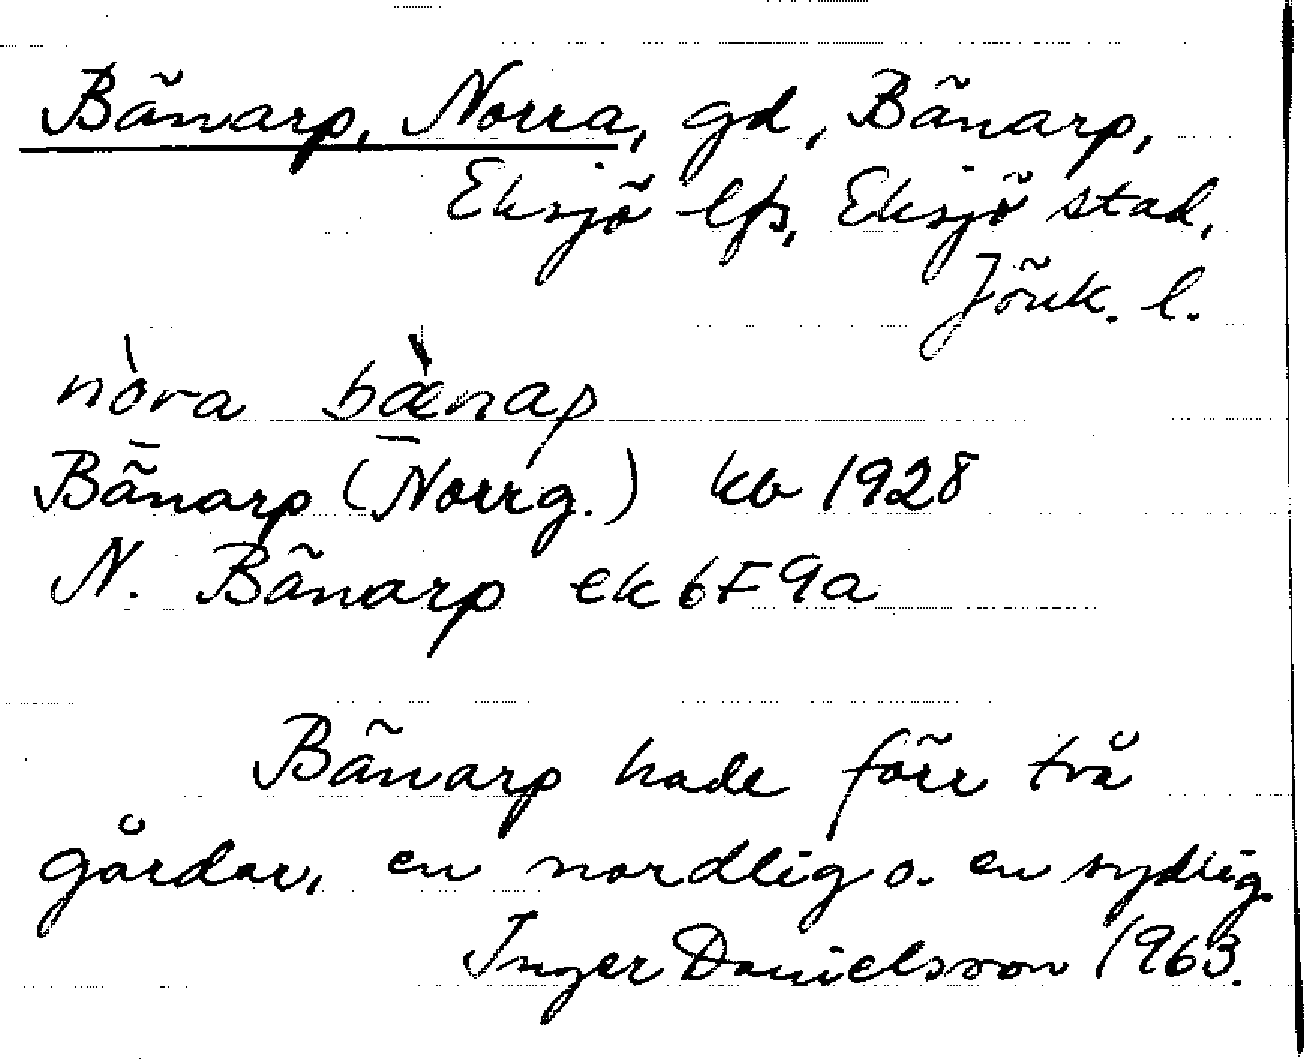 Bänarp, Norra, gd, Bänarp,
Eksjö lfs, Eksjö stad,
Jönk. l.
nòra bæ̀nap
Bänarp (Norrg.) kb 1928
N. Bänarp ek 6F9a
Bänarp hade förr två
gårdar, en nordlig o. en sydlig.
Inger Danielsson 1963.